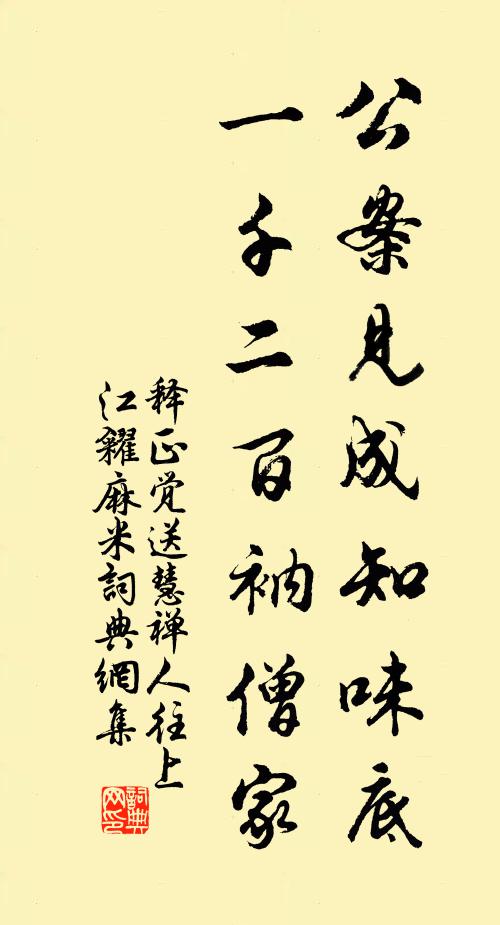 公案見成知味底
一千二百衲僧家
释正觉送慧禅人往上
江糴麻米詞典網集
詞典
网印